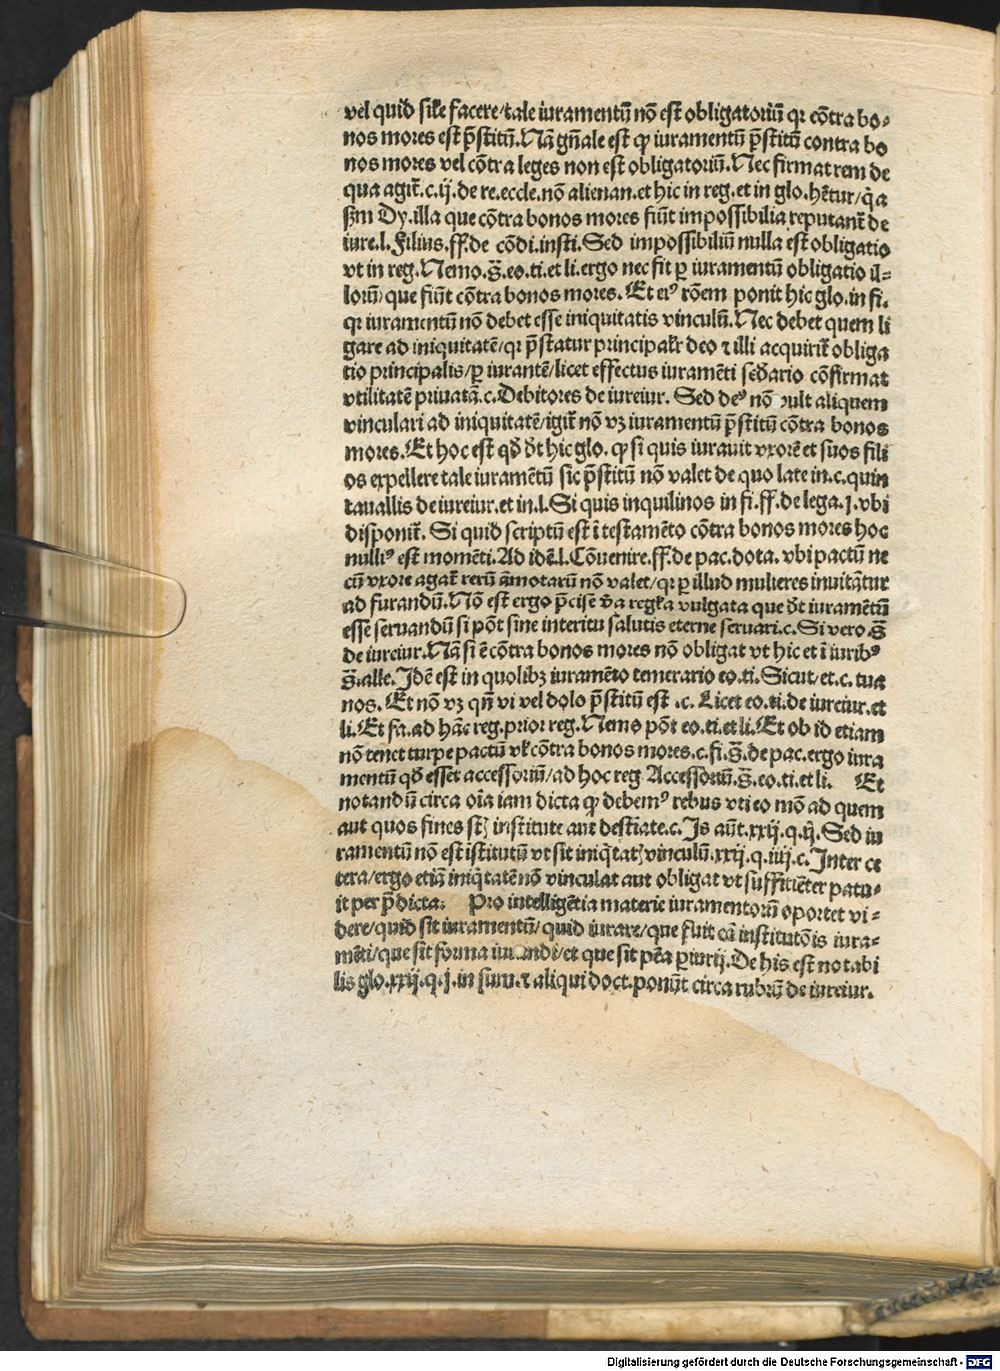 vel quid sil̃e facere/tale iuramentũ nõ est obligatoriũ qꝛ cõtra bo-
nos mores est p̃stitũ. Nã gñale est ꝙ iuramentũ p̃stitũ contra bo
nos mores vel cõtra leges non est obligatoriũ. Nec firmat rem de
qua agit̃.c.ij.de re.eccle.nõ alienan.et hic in reg.et in glo.hẽtur/q̃a
ẜm Dy.illa que cõtra bonos mores fiũt impossibilia reputant̃ de
iure.l.Filius.ff.de cõdi.insti.Sed impossibiliũ nulla est obligatio
vt in reg.Nemo.s̃.eo.ti.et li.ergo nec fit ꝑ iuramentũ obligatio il-
lorũ/que fiũt cõtra bonos mores. Et eiꝰ rõem ponit hic glo.in fi.
qꝛ iuramentũ nõ debet esse iniquitatis vinculũ. Nec debet quem li
gare ad iniquitatẽ/qꝛ p̃statur principalr̃ deo ⁊ illi acquirit̃ obliga
tio principalis/ꝑ iurantẽ/licet effectus iuramẽti sec̃dario cõfirmat
vtilitatẽ priuatã.c.Debitores de iureiur. Sed deꝰ nõ vult aliquem
vinculari ad iniquitatẽ/igit̃ nõ vꝫ iuramentũ p̃stitũ cõtra bonos
mores. Et hoc est qd̃ d̃t hic glo. ꝙ si quis iurauit vxorẽ et suos fili
os expellere tale iuramẽtũ sic p̃stitũ nõ valet de quo late in.c.quin
tauallis de iureiur.et in.l.Si quis inquilinos in fi.ff.de lega.j.vbi
disponit̃. Si quid scriptũ est ĩ testamẽto cõtra bonos mores hoc
nulliꝰ est momẽti. Ad idẽ.l.Cõuenire.ff.de pac.dota. vbi pactũ ne
cũ vxore agat̃ rerũ ãmotarũ nõ valet/qꝛ ꝑ illud mulieres inuitãtur
ad furandũ. Nõ est ergo p̃cise v̾a regl̃a vulgata que d̃t iuramẽtũ
esse seruandũ si põt sine interitu salutis eterne seruari.c.Si vero.s̃.
de iureiur. Nã si ẽ cõtra bonos mores nõ obligat vt hic et ĩ iuribꝰ
s̃.alle. Jdẽ est in quolibꝫ iuramẽto temerario eo.ti.Sicut/et.c.tua
nos. Et nõ vꝫ qñ vi vel dolo p̃stitũ est .c. Licet eo.ti.de iureiur.et
li. Et fa.ad hãc reg.prior reg.Nemo põt eo.ti.et li. Et ob id etiam
nõ tenet turpe pactũ vl̃ cõtra bonos mores.c.fi.s̃.de pac.ergo iura
mentũ qd̃ esset accessoriũ/ad hoc reg Accessoriũ.s̃.eo.ti.et li. Et
notandũ circa oĩa iam dicta ꝙ debemꝰ rebus vti eo mõ ad quem
aut quos fines sũt institute aut destĩate.c.Js aũt.xxij.q.ij. Sed iu
ramentũ nõ est istitutũ vt sit iniq̃tatꝭ vinculũ.xxij.q.iiij.c.Inter ce
tera/ergo etiã iniq̃tatẽ nõ vinculat aut obligat vt suffitiẽter patu-
it per p̃dicta. Pro intelligẽtia materie iuramentorũ oportet vi-
dere/quid sit iuramentũ/quid iurare/que fuit cã institutõis iura-
mẽti/que sit forma iurandi/et que sit pẽa ꝑiurij. De his est notabi
lis glo.xxij.q.j.in sum.⁊ aliqui doct.ponũt circa rubrũ de iureiur.
Digitalisierung gefördert durch die Deutsche Forschungsgemeinschaft - DFG